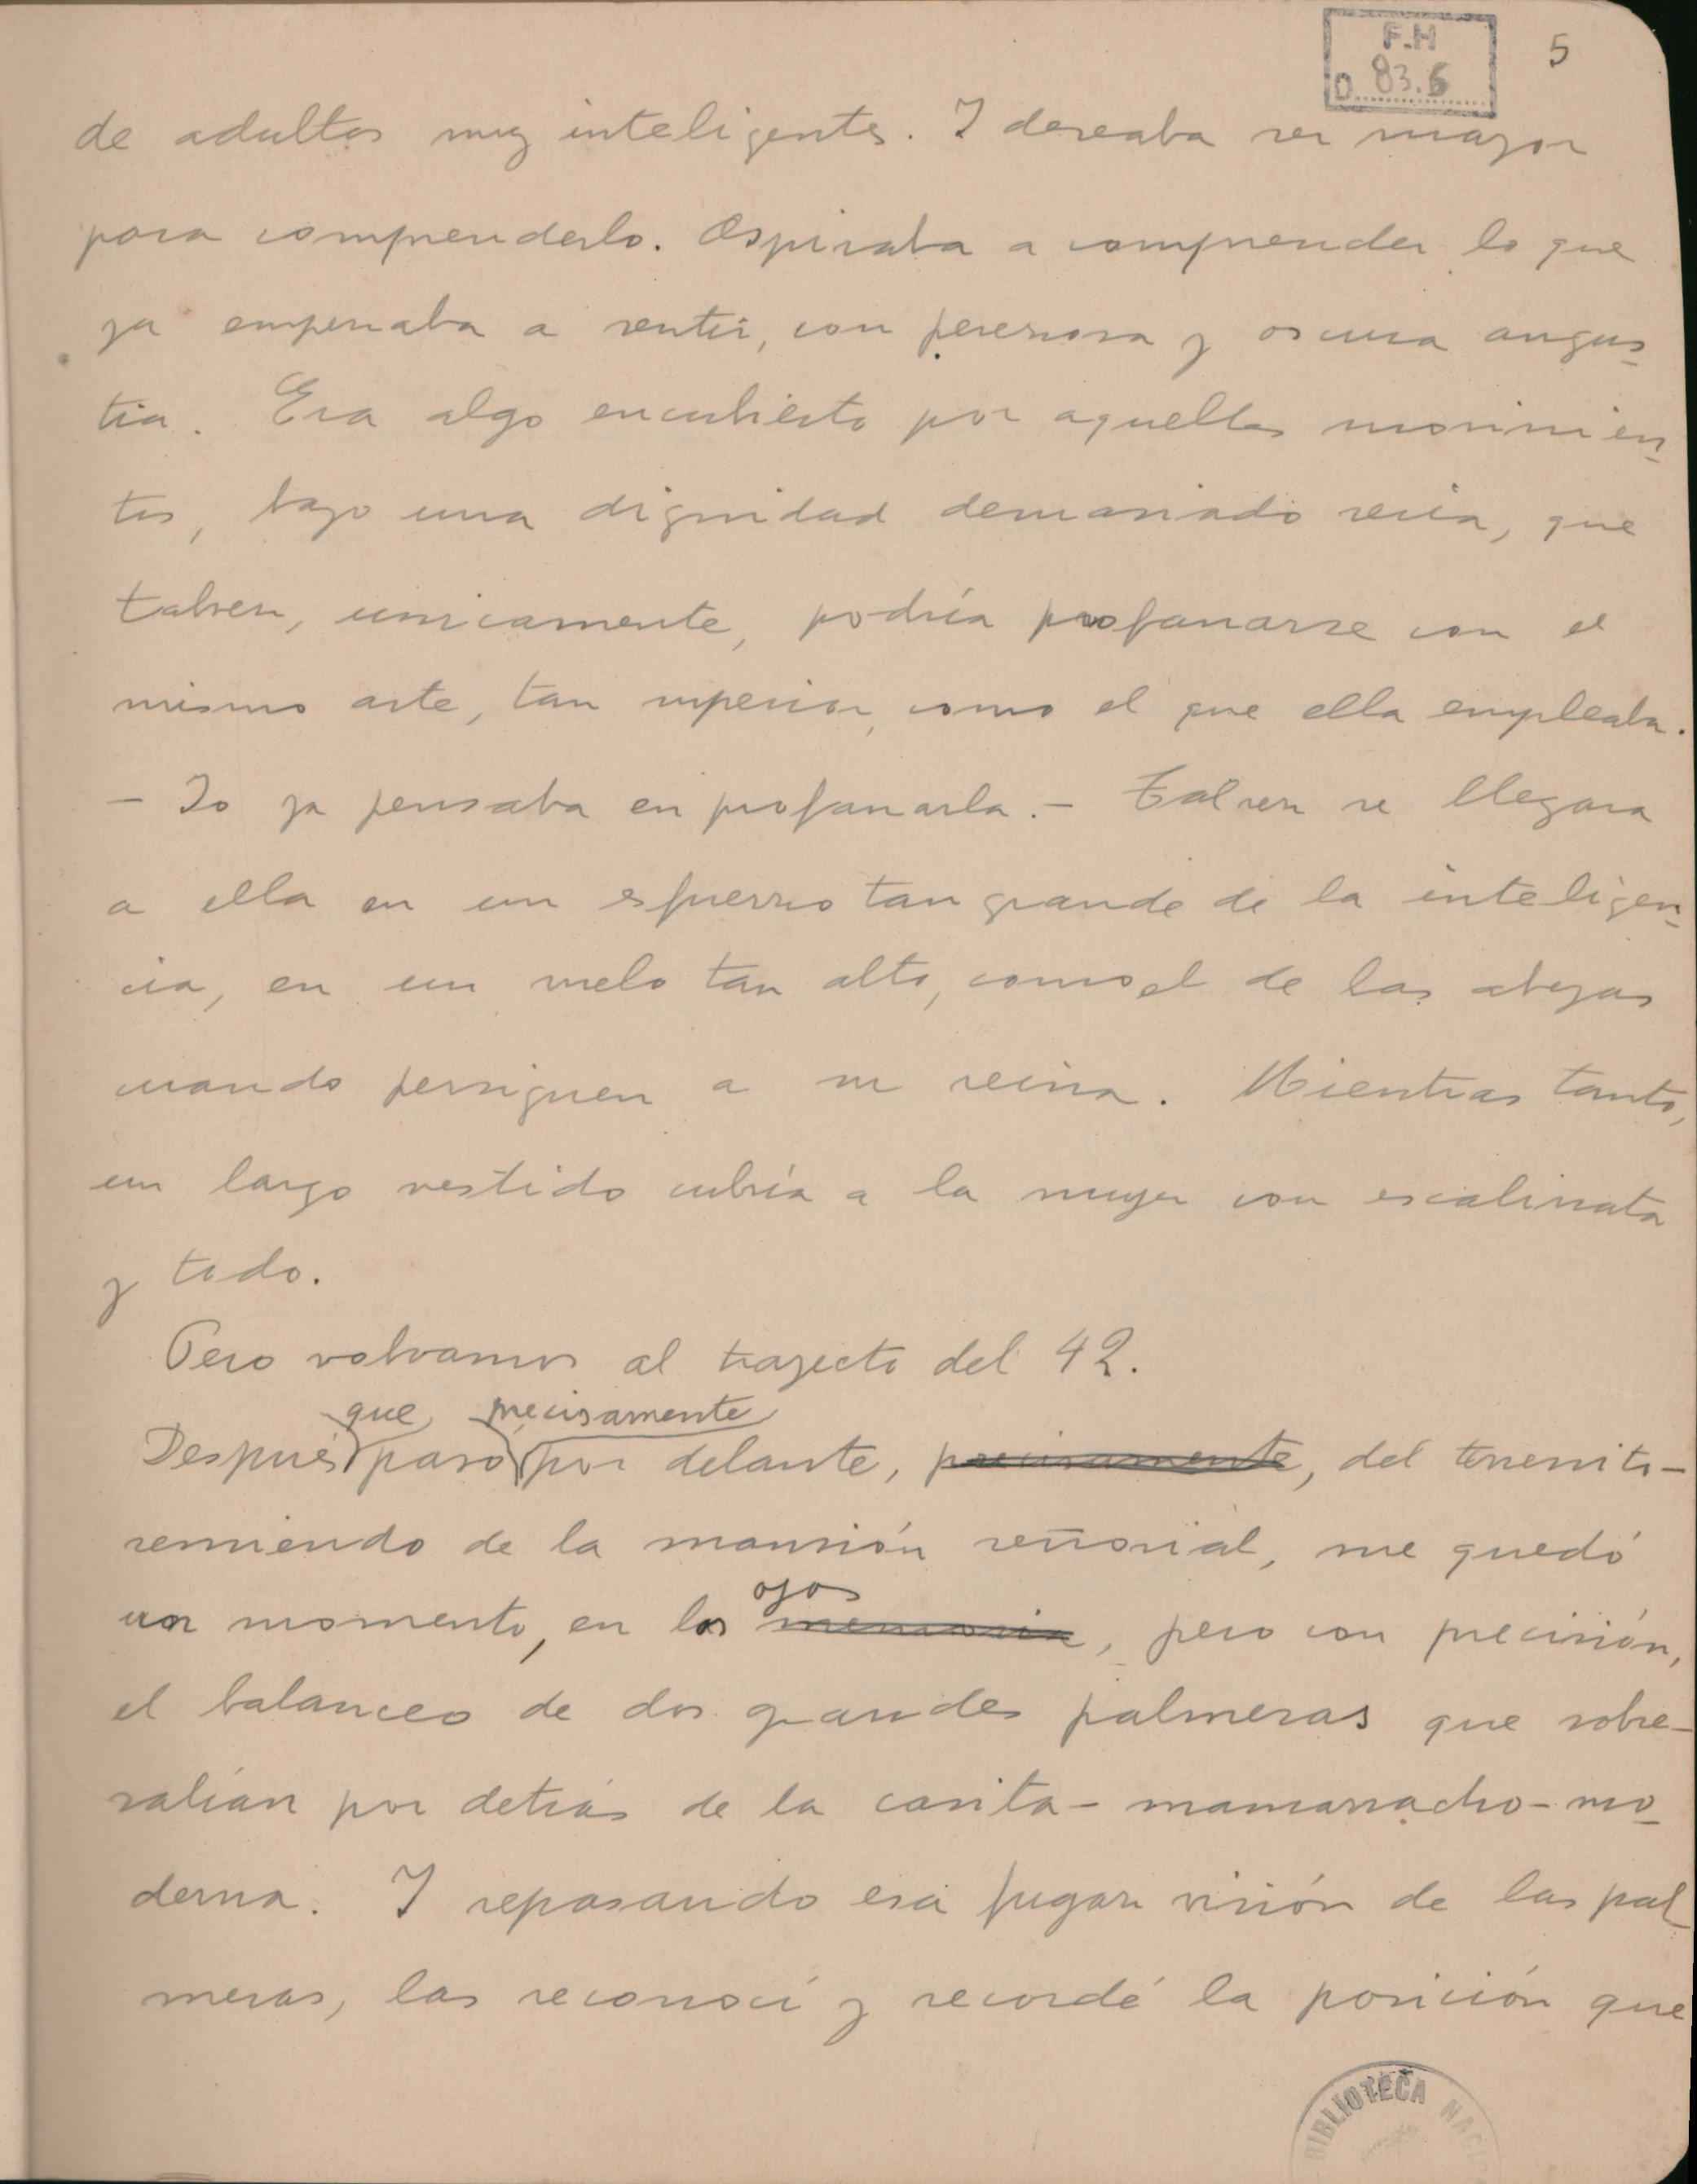 F.H
D. 83.6
5
de adultos muy inteligentes. Y deseaba ser mayor
para comprenderlo. Aspiraba a comprender lo que
ya empezaba a sentir, con perezosa y oscura angus-
tia. Era algo encubierto por aquellos movimien-
tos, bajo una dignidad demasiado seria, que
talvez, unicamente, podría profanarse con el
mismo arte, tan superior, como el que ella empleaba.
- Yo ya pensaba en profanarla. - Talvez se llegara
a ella en un esfuerzo tan grande de la inteligen-
cia, en un vuelo tan alto, como el de las abejas
cuando persiguen a su reina. Mientras tanto,
un largo vestido cubría a la mujer con escalinata
y todo.
Pero volvamos al trayecto del 42.
que precisamente
Después pasó por delante, precisamente, del terrenito-
remiendo de la mansión señorial, me quedó
ojos
un momento, en los memoria, pero con precisión,
el balanceo de dos grandes palmeras que sobre-
salían por detrás de la casita-mamarracho-mo-
derna. Y repasando esa fugaz visión de las pal-
meras, las reconocí y recordé la posición que
BIBLIOTECA NACI